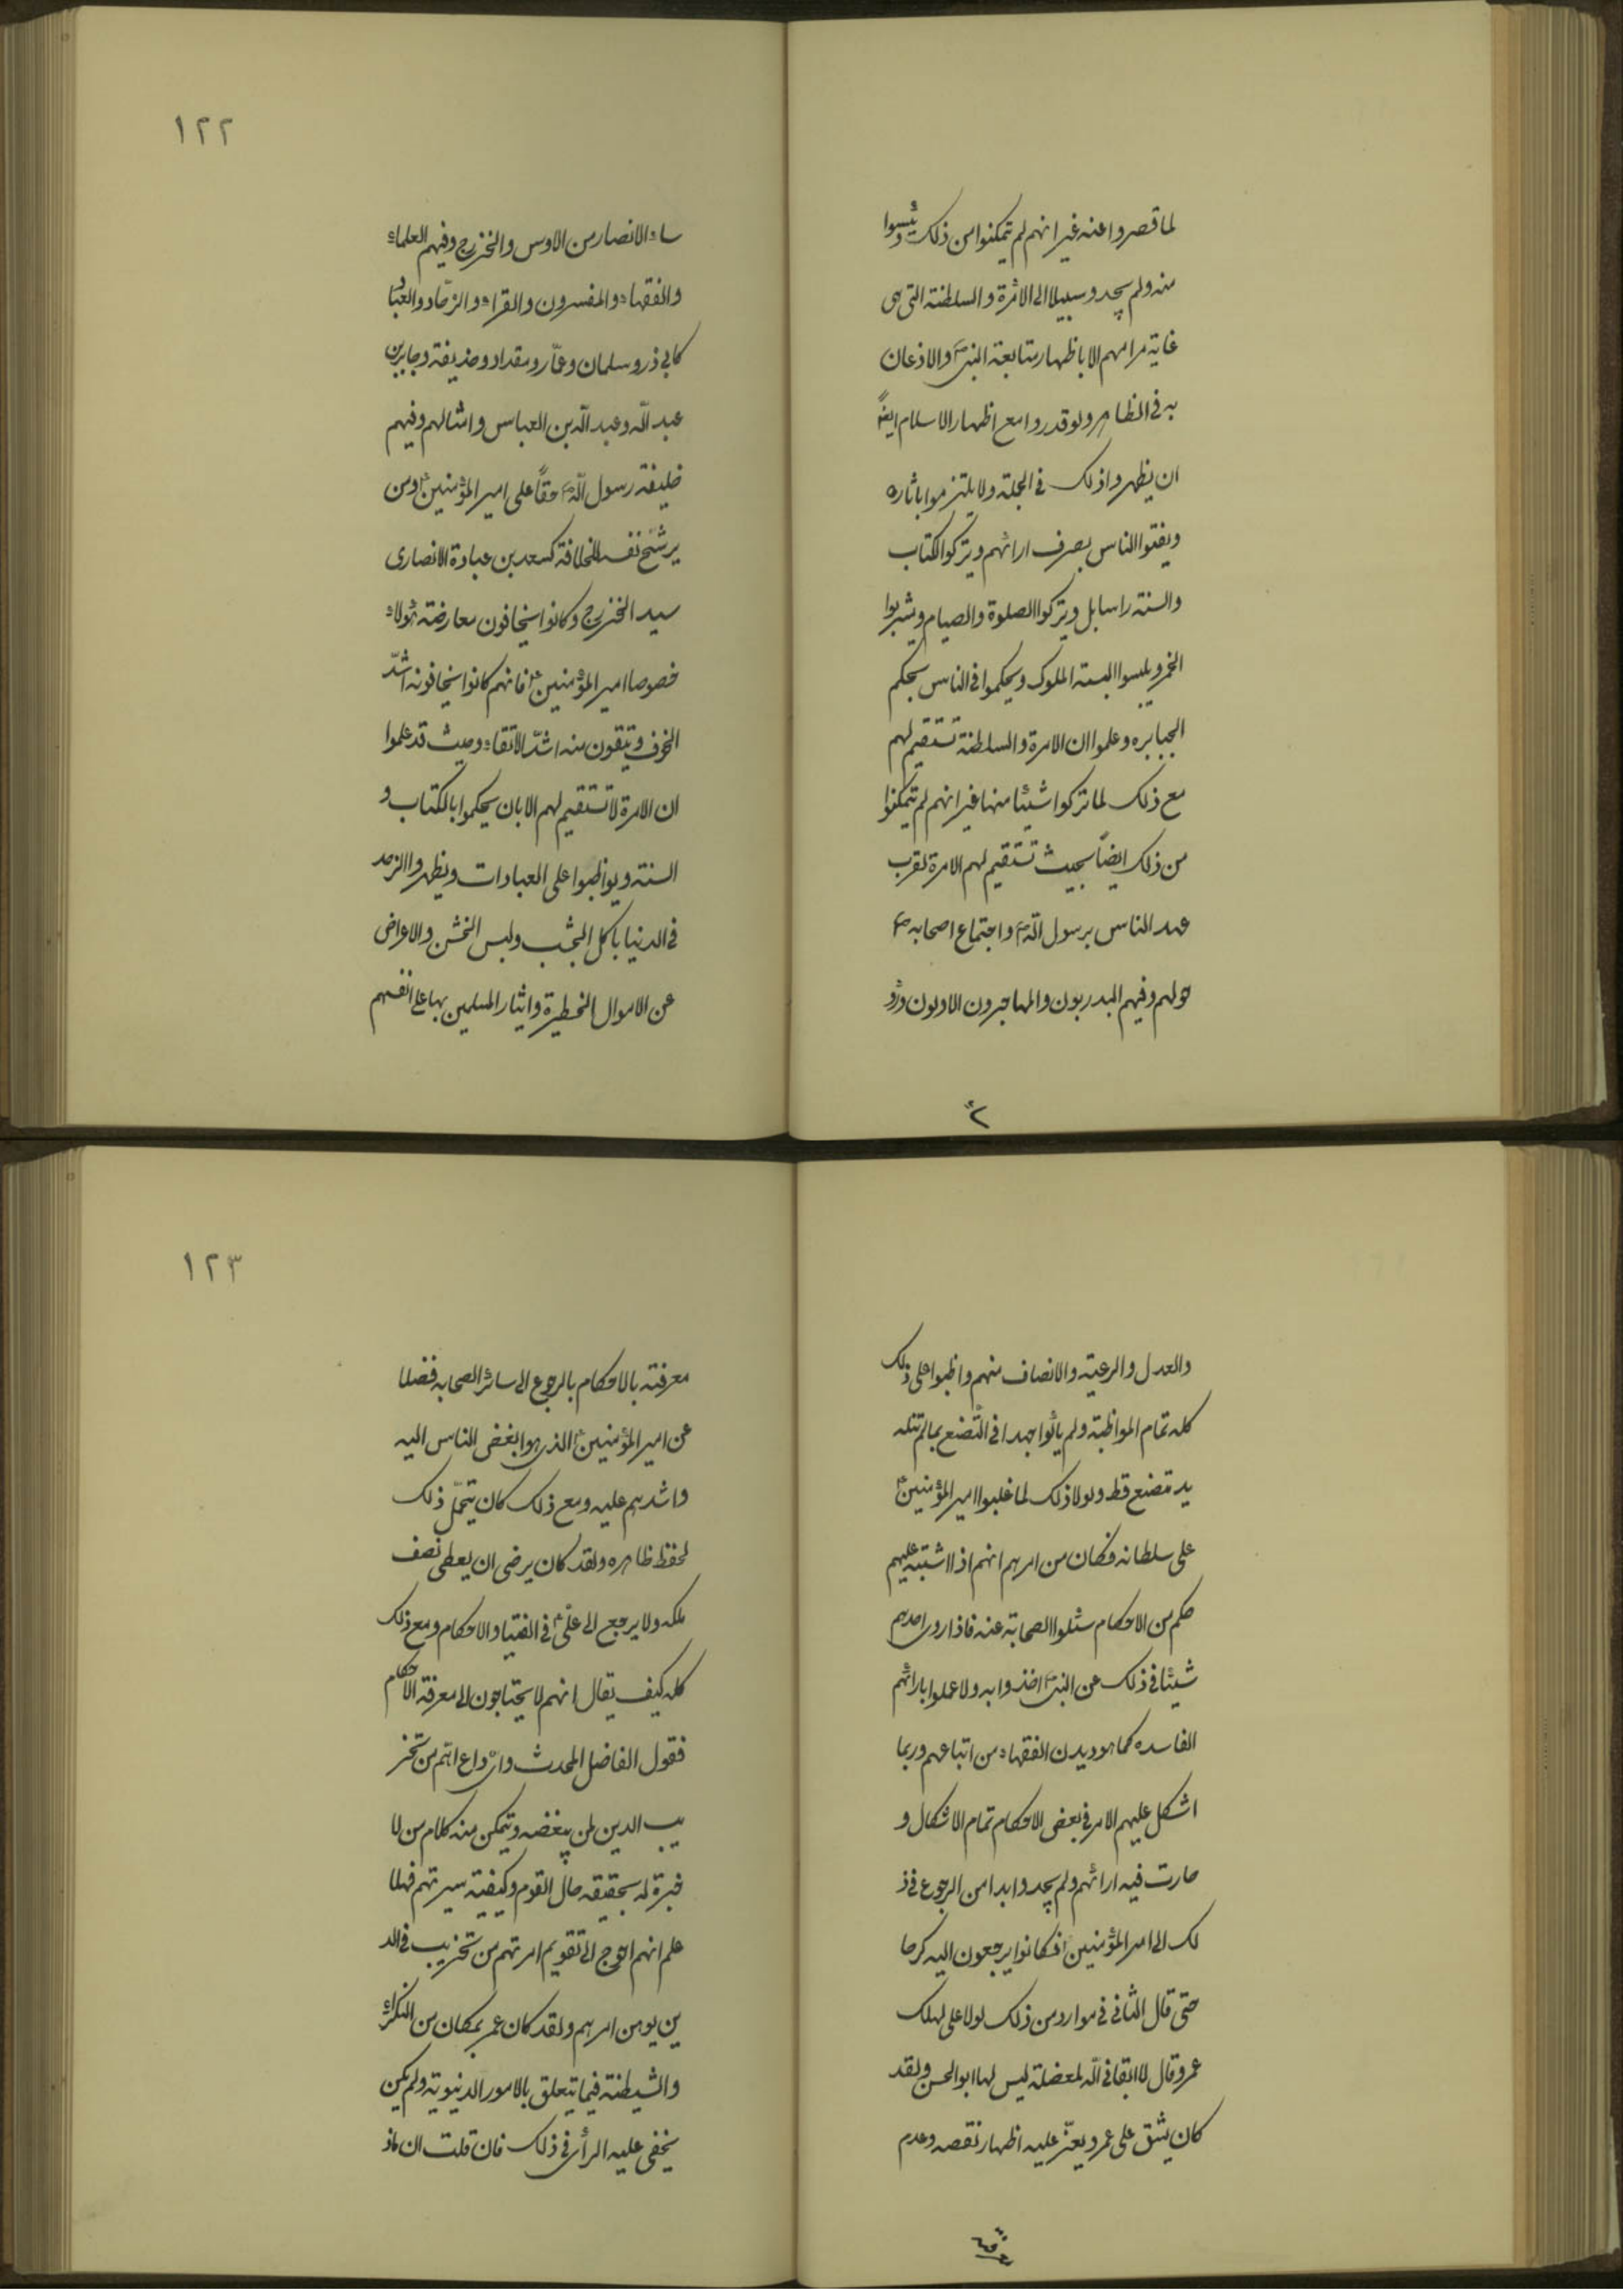 لما قصروا عنه غير انهم لم يتمكنوا من ذلك ويئسوا
منه ولم يجدوا سبيلا الى الامرة والسلطنة التى هى
غاية مرامهم الا باظهار متابعة النبى ص والاذعان
به فى الظاهر ولو قدروا مع اظهار الاسلام ايضا
ان يظهروا ذلك فى الجملة ولا يلتزموا باثاره
ويفتوا الناس بصرف ارائهم ويتركوا الكتاب
والسنة راسا بل ويتركوا الصلوة والصيام ويشربوا
الخمر ويلبسوا البسة الملوك ويحكموا فى الناس بحكم
الجبابره وعلموا ان الامرة والسلطنة تستقيم لهم
مع ذلك لما تركوا شيئا منها غير انهم لم يتمكنوا
من ذلك ايضاً بحيث تستقيم لهم الامرة لقرب
عهد الناس برسول الله ص واجتماع اصحابه ص
حولهم وفيهم البدريون والمهاجرون الاولون ورؤ
ء
١٢٢
ساء الانصار من الاوس والخزرج وفيهم العلماء
والفقهاء والمفسرون والقراء والزهّاد والعبّاد
كابي ذر وسلمان وعمّار ومقداد وحذيفة وجابر بن
عبد الله وعبد الله بن العباس وامثالهم وفيهم
خليفة رسول الله ص حقاً على امير المؤمنين ع ومن
يرشّح نفسه للخلافة كسعد بن عبادة الانصارى
سيد الخزرج وكانوا يخافون معارضة هؤلاء
خصوصا امير المؤمنين ع فانهم كانوا يخافونه اشدّ
الخوف ويتقون منه اشدّ الاتقاء وحيث قد علموا
ان الامرة لا تستقيم لهم الا بان يحكموا بالكتاب و
السنة ويواظبوا على العبادات ويظهروا الزهد
فى الدنيا باكل الجشب ولبس الخشن والاعراض
عن الاموال الخطيرة وايثار المسلمين بها على انفسهم
والعدل والرعية والانصاف منهم واظبوا على ذلك
كله تمام المواظبة ولم يألوا جهدا فى التّصنع بما لم تنله
يد متصنع قط ولولا ذلك لما غلبوا امير المؤمنين ع
على سلطانه فكان من امرهم انهم اذا اشتبه عليهم
حكم من الاحكام سئلوا الصحابة عنه فاذا روى احدهم
شيئا فى ذلك عن النبى ص اخذوا به ولا عملوا بارائهم
الفاسده كما هو ديدن الفقهاء من اتباعهم وربما
اشكل عليهم الامر فى بعض الاحكام تمام الاشكال و
حارت فيه ارائهم ولم يجدوا بدا من الرجوع فى ذ
لك الى امير المؤمنين ع فكانوا يرجعون اليه كرها
حتى قال الثانى فى موارد من ذلك لولا على لهلك
عمر وقال لا ابقانى الله لمعضلة ليس لها ابو الحسن ولقد
كان يشق على عمر ويعزّ عليه اظهار نقصه وعدم
معرفته
١٢٣
معرفته بالاحكام بالرجوع الى سائر الصحابه فضلا
عن امير المؤمنين ع الذى هو ابغض الناس اليه
واشدهم عليه ومع ذلك كان يتحمّل ذلك
لحفظ ظاهره ولقد كان يرضى ان يعطى نصف
ملكه ولا يرجع الى علىّ ع فى الفتيا والاحكام ومع ذلك
كله كيف يقال انهم لا يحتاجون الى معرفة الاحكام
فقول الفاضل المحدث واىّ داع اتم من تخر
يب الدين لمن يبغضه ويتمكن منه كلام من لا
خبرة له بحقيقه حال القوم وكيفية سيرتهم فهلا
علم انهم احوج الى تقويم امرتهم من تخريب فى الد
ين يوهن امرهم ولقد كان عمر بمكان من النكراء
والشيطنة فيما يتعلق بالامور الدنيوية ولم يكن
يخفى عليه الرأى فى ذلك فان قلت ان ماذ